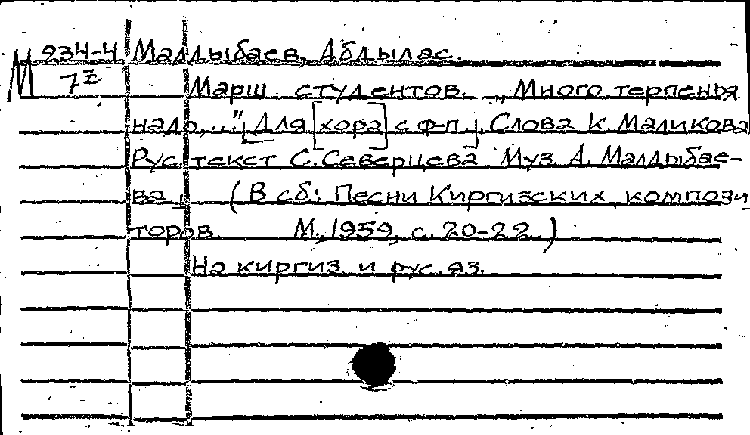 М 234-4 Малдыбаев, Абдылас.
7 Марш студентов. „Много терпенья
надо,..." [Для [хора] с ф-п.]. Слова К. Маликова
Рус. текст С. Северцева Муз. А. Малдыбае-
ва. (В сб: Песни Киргизских компози
торов М., 1959, с. 20-22.)
На киргиз. и рус. яз.